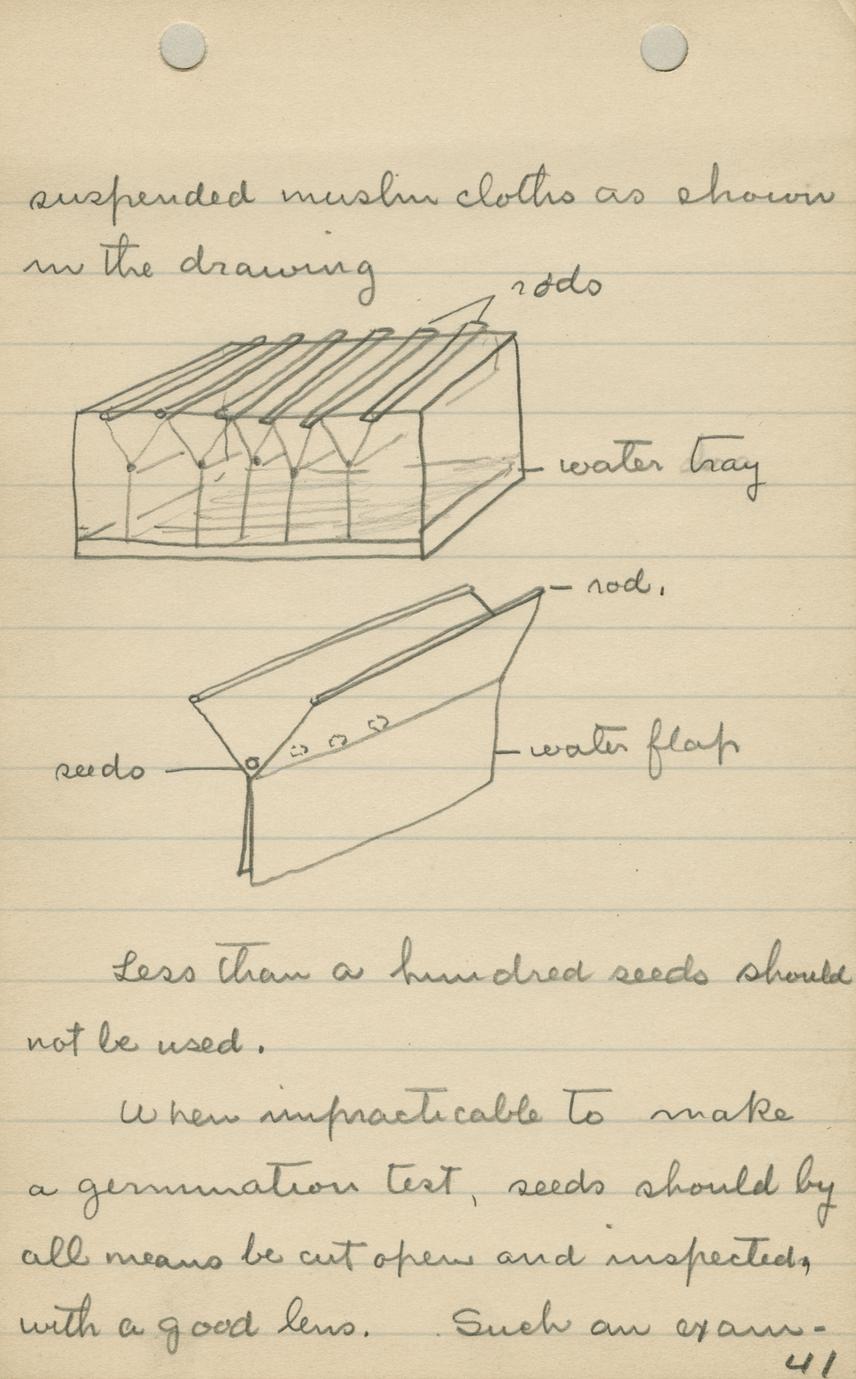 suspended muslin cloths as shown
in the drawing
rods
water tray
rod.
seeds
water flap
Less than a hundred seeds should
not be used.
When impracticable to make
a germination test, seeds should by
all means be cut open and inspected,
with a good lens. Such an exam-
41